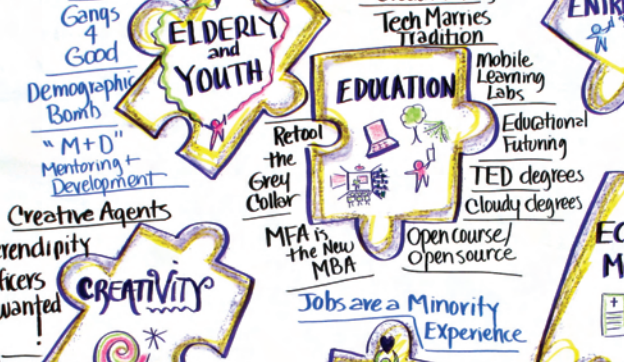 Gangs
4
Good
Demographic
Bomb
"M+D"
Mentoring +
Development
ELDERLY
and
YOUTH
Tech Marries
Tradition
EDUCATION
Mobile
Learning
Labs
Educational
Futuring
TED degrees
Cloudy degrees
Open course/
Open source
Retool
the
Grey
Collar
MFA is
the New
MBA
Creative Agents
erendipity
ficers
wanted
!
CREATIVITY
Jobs are a Minority
Experience
EC
M